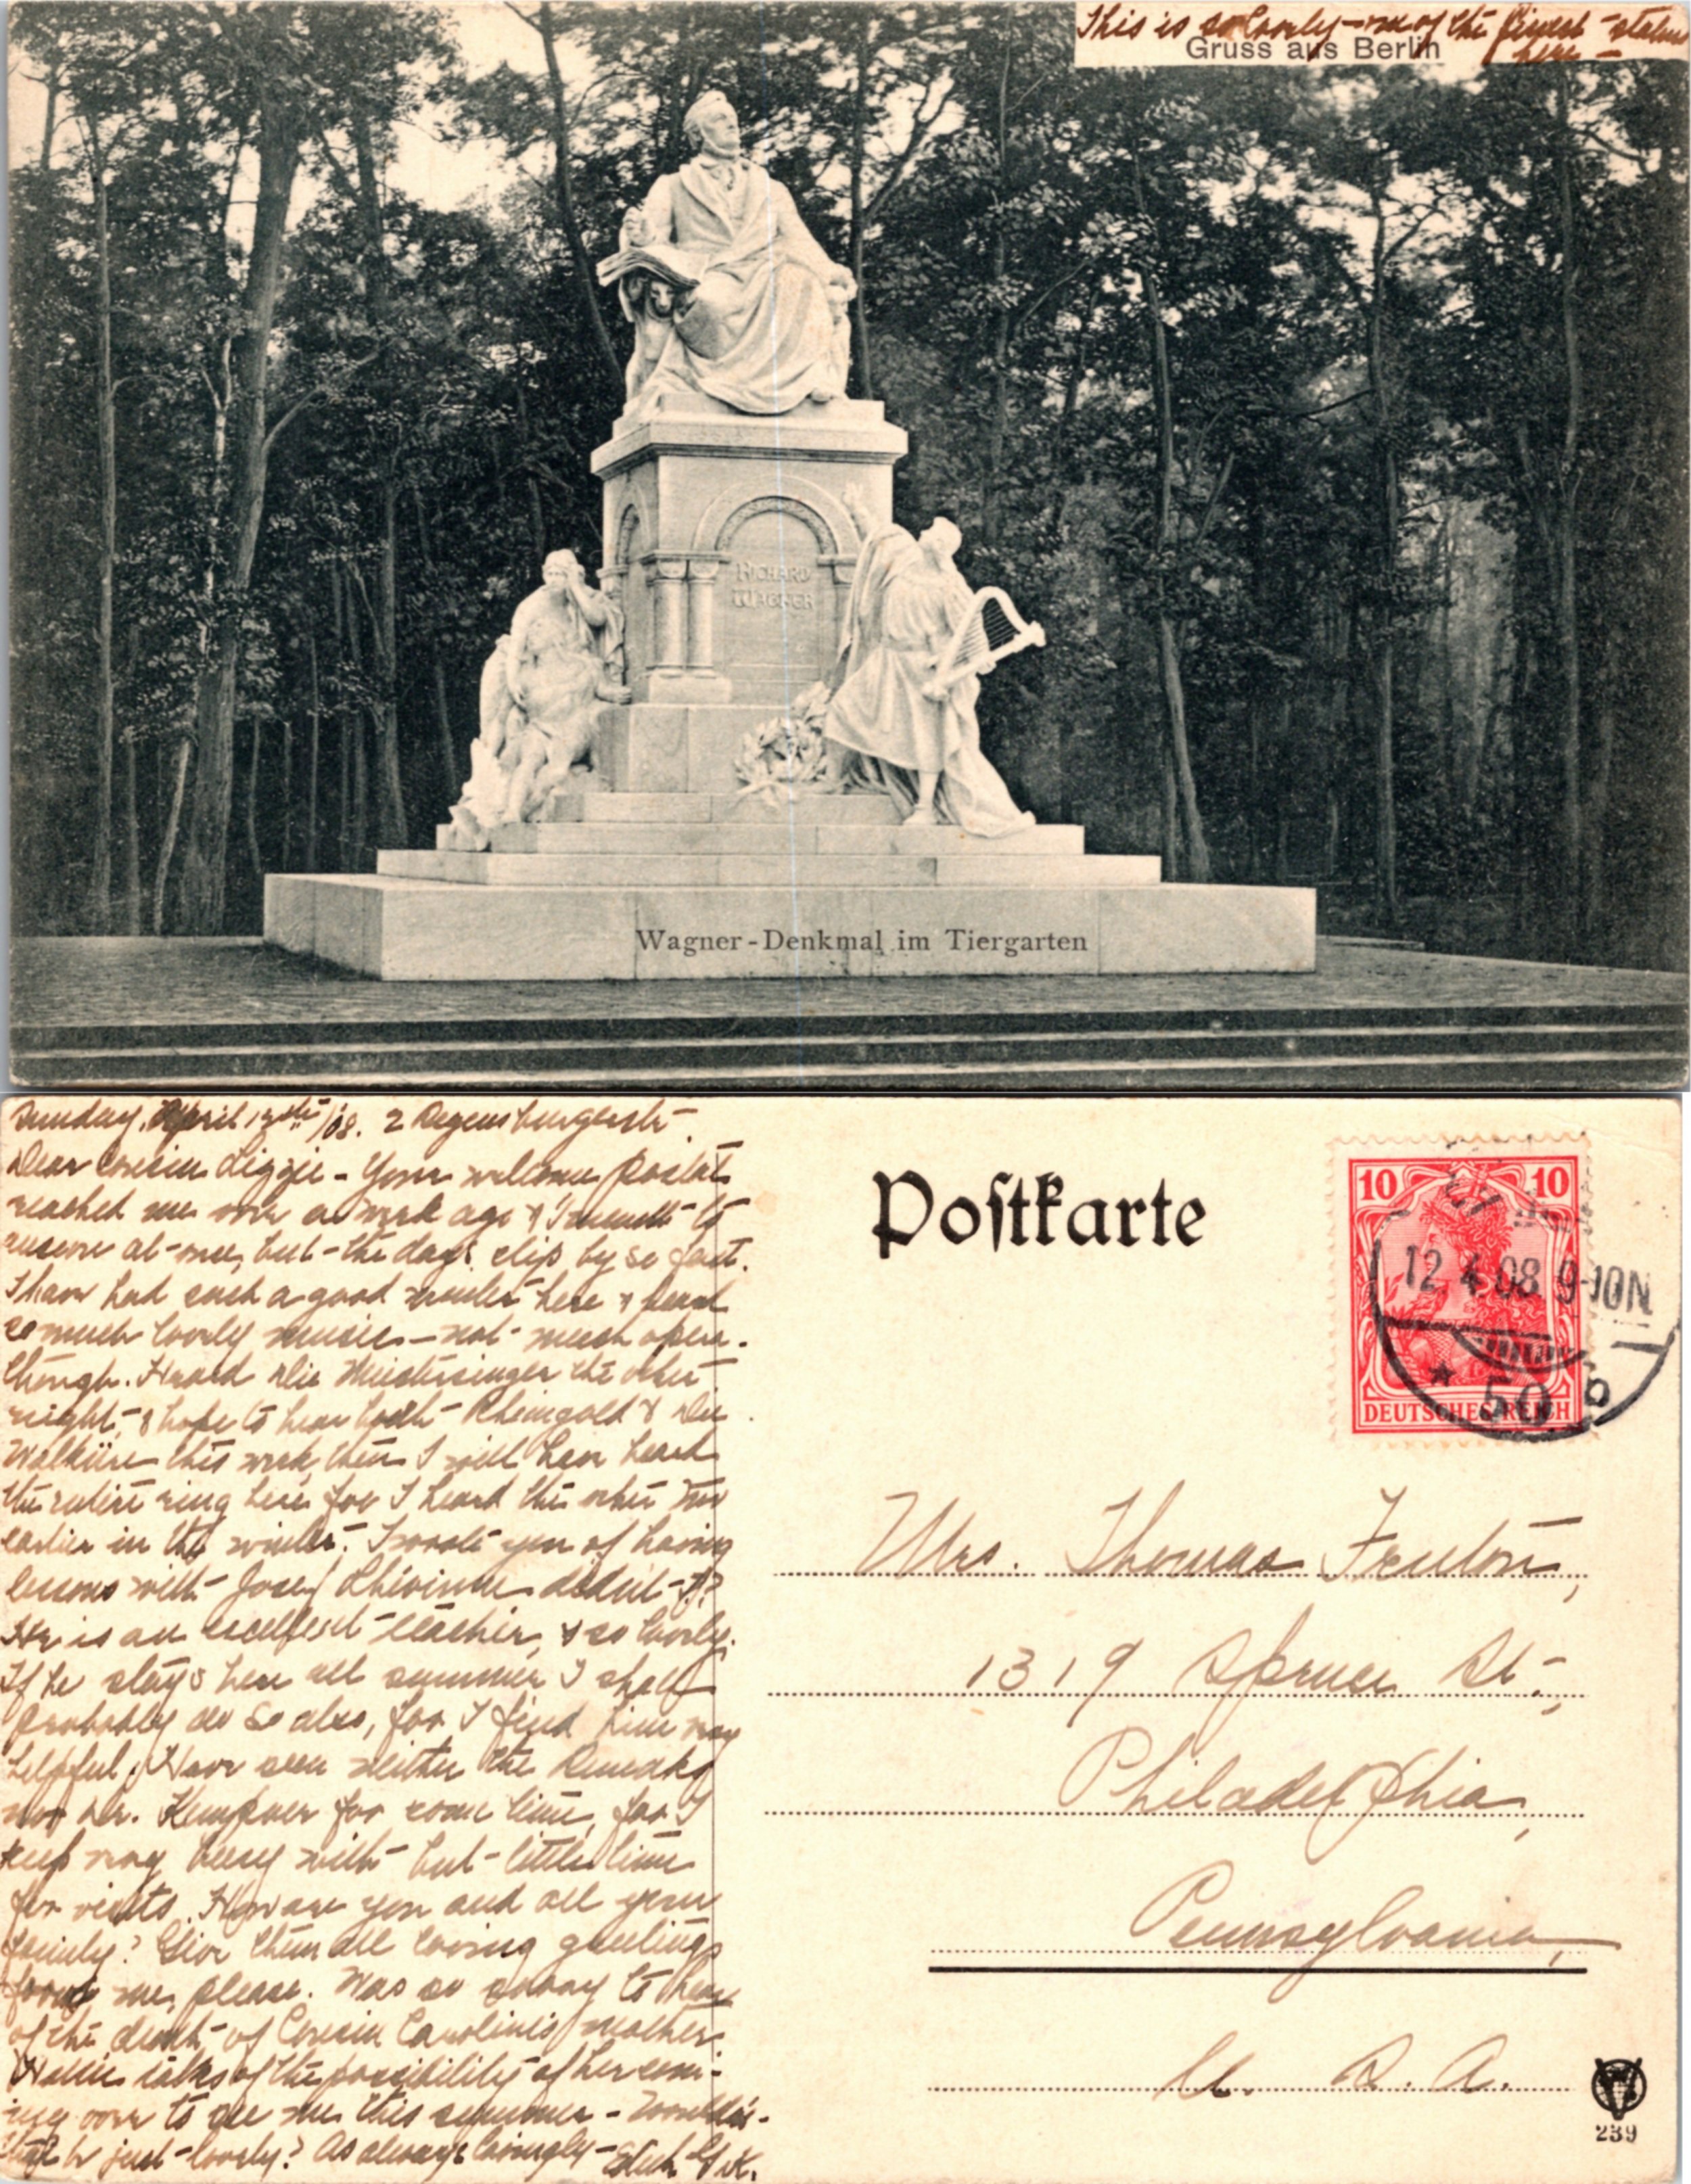 This is so lovely - one of the finest statues
here -
Gruss aus Berlin
RICHARD
WAGNER
Wagner-Denkmal im Tiergarten
Sunday, April 12th/08. 2 Regensburgerstr.
Dear Cousin Lizzie - Your welcome postal
reached me over a week ago & I meant to
answer at once, but the days slip by so fast.
I have had such a good winter here & heard
so much lovely music - not much opera
though. Heard Die Meistersinger the other
night, & hope to hear both Rheingold & Die
Walküre this week, then I will have heard
the entire ring here for I heard the other two
earlier in the winter. I wrote you of having
lessons with Josef Lhévinne didn't I?
He is an excellent teacher, & so lovely.
If he stays here all summer I shall
probably do so also, for I find him very
helpful. Have seen neither the
nor Dr. Kempner for some time, for I
keep very busy with but little time
for visits. How are you and all your
family? Give them all loving greetings
from me, please. Was so sorry to hear
of the death of Cousin Caroline's mother.
Hallie talks of the possibility of her com-
ing over to see me this summer - Wouldn't
that be just lovely? As always lovingly -
Postkarte
10 10
DEUTSCHES REICH
12 4 08 9-10N
* 50 b
Mrs. Thomas Fenton,
1319 Spruce St.,
Philadelphia,
Pennsylvania,
U. S. A.
239